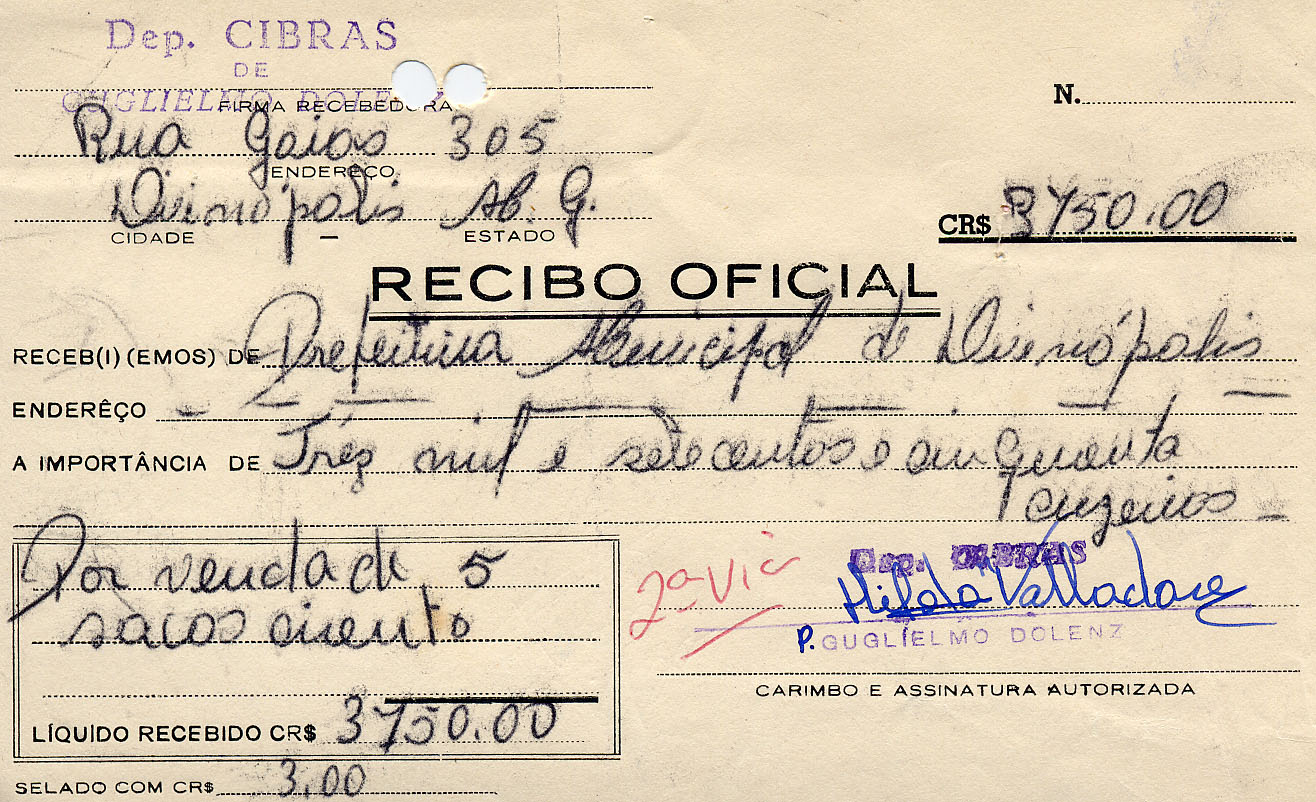 Dep. CIBRAS
DE
GUGLIELMO DOLENZ
FIRMA RECEBEDORA
N.
Rua Goias 305
ENDERÊÇO
Divinópolis M. G.
CIDADE – ESTADO
CR$ 3750.00
RECIBO OFICIAL
RECEB(I) (EMOS) DE Prefeitura Municipal de Divinópolis
ENDERÊÇO
A IMPORTÂNCIA DE Três mil e setecentos e cinquenta
cruzeiros
Por venda de 5
sacos cimento
LÍQUIDO RECEBIDO CR$ 3750.00
SELADO COM CR$ 3,00
2ª via
Dep. CIBRAS
Hilda Valladares
P. GUGLIELMO DOLENZ
CARIMBO E ASSINATURA AUTORIZADA